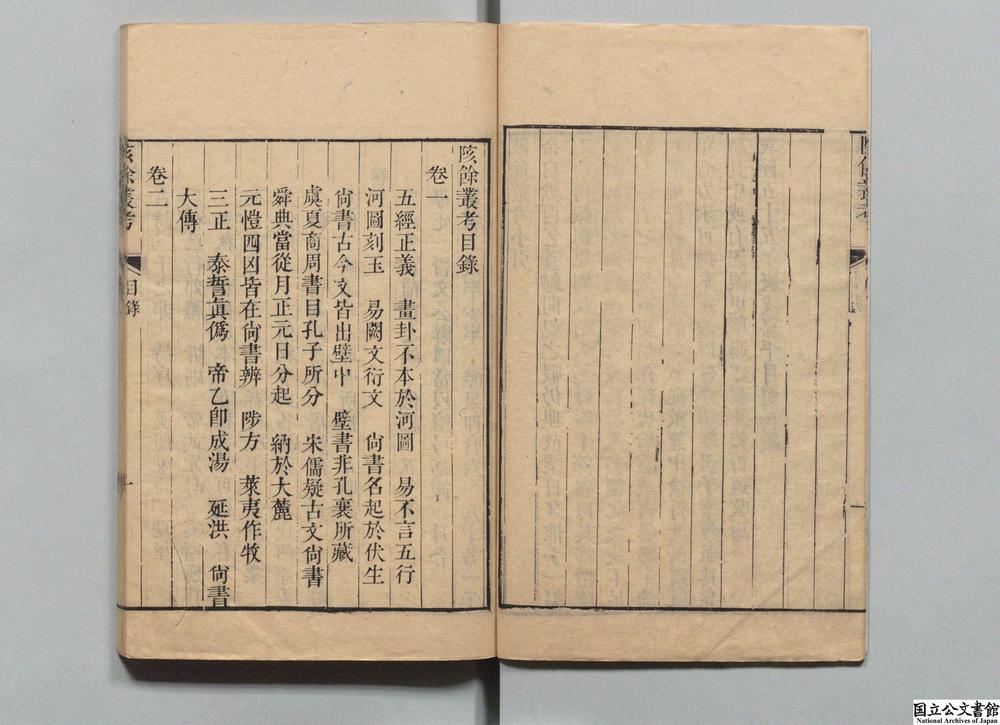 陔餘叢考
一
陔餘叢考目錄
卷一
五經正義　畫卦不本於河圖　易不言五行
河圖刻玉　易闕文衍文　尙書名起於伏生
尙書古今文皆出壁中　壁書非孔襄所藏
虞夏商周書目孔子所分　宋儒疑古文尙書
舜典當從月正元日分起　納於大麓
元愷四凶皆在尙書辨　陟方　萊夷作牧
三正　泰誓眞僞　帝乙卽成湯　延洪　尙書
大傳
卷二
陔餘叢考
目錄
一
国立公文書館
National Archives of Japan